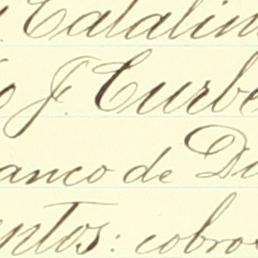 Catalin
J. Curbe
anco de D
ntos: cobro